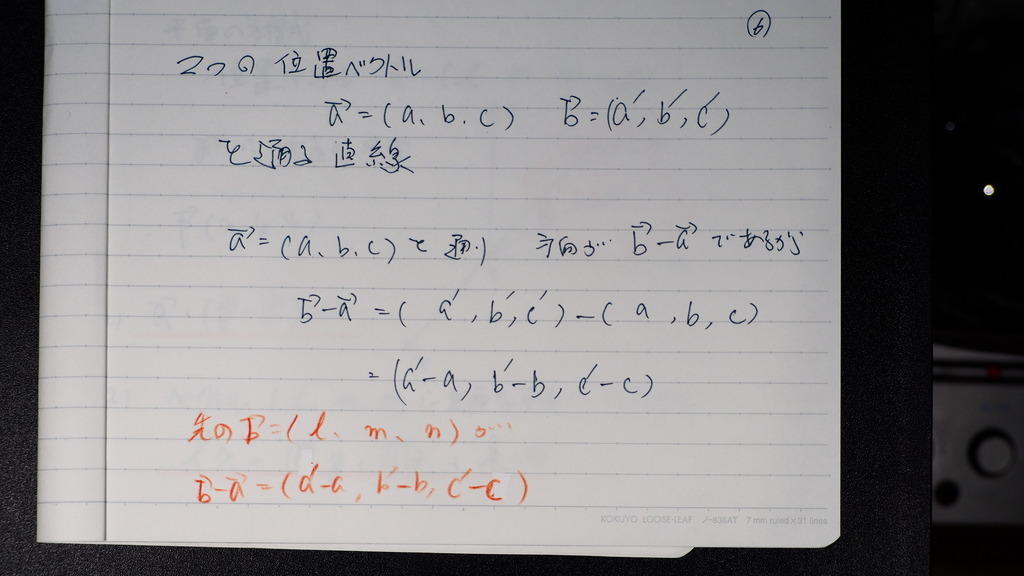 ⑥
2つの 位置ベクトル
a→=(a、b、c) b→=(a′, b′, c′)
を通る 直線
a→=(a、b、c)を通り 方向が b→-a→であるから
b→-a→=( a′, b′, c′)-( a, b, c)
=(a′-a, b′-b, c′-c)
先のb→=(l、m、n)が…
b→-a→=(a′-a, b′-b, c′-c)
KOKUYO LOOSE-LEAF ノ-836AT 7 mm ruled×31 lines